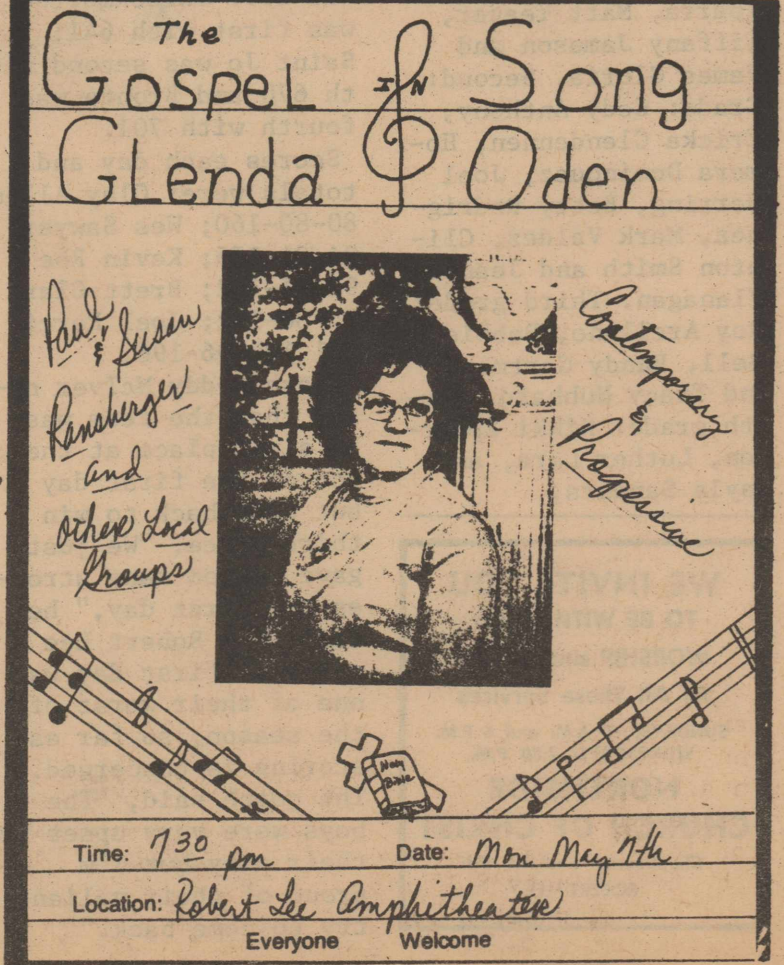 The
Gospel IN Song
Glenda Oden
Paul & Susan
Ransberger
and
other Local
Groups
Contemporary
&
Progressive
Holy
Bible
Time: 7 30 pm Date: Mon May 7th
Location: Robert Lee Amphitheater
Everyone Welcome